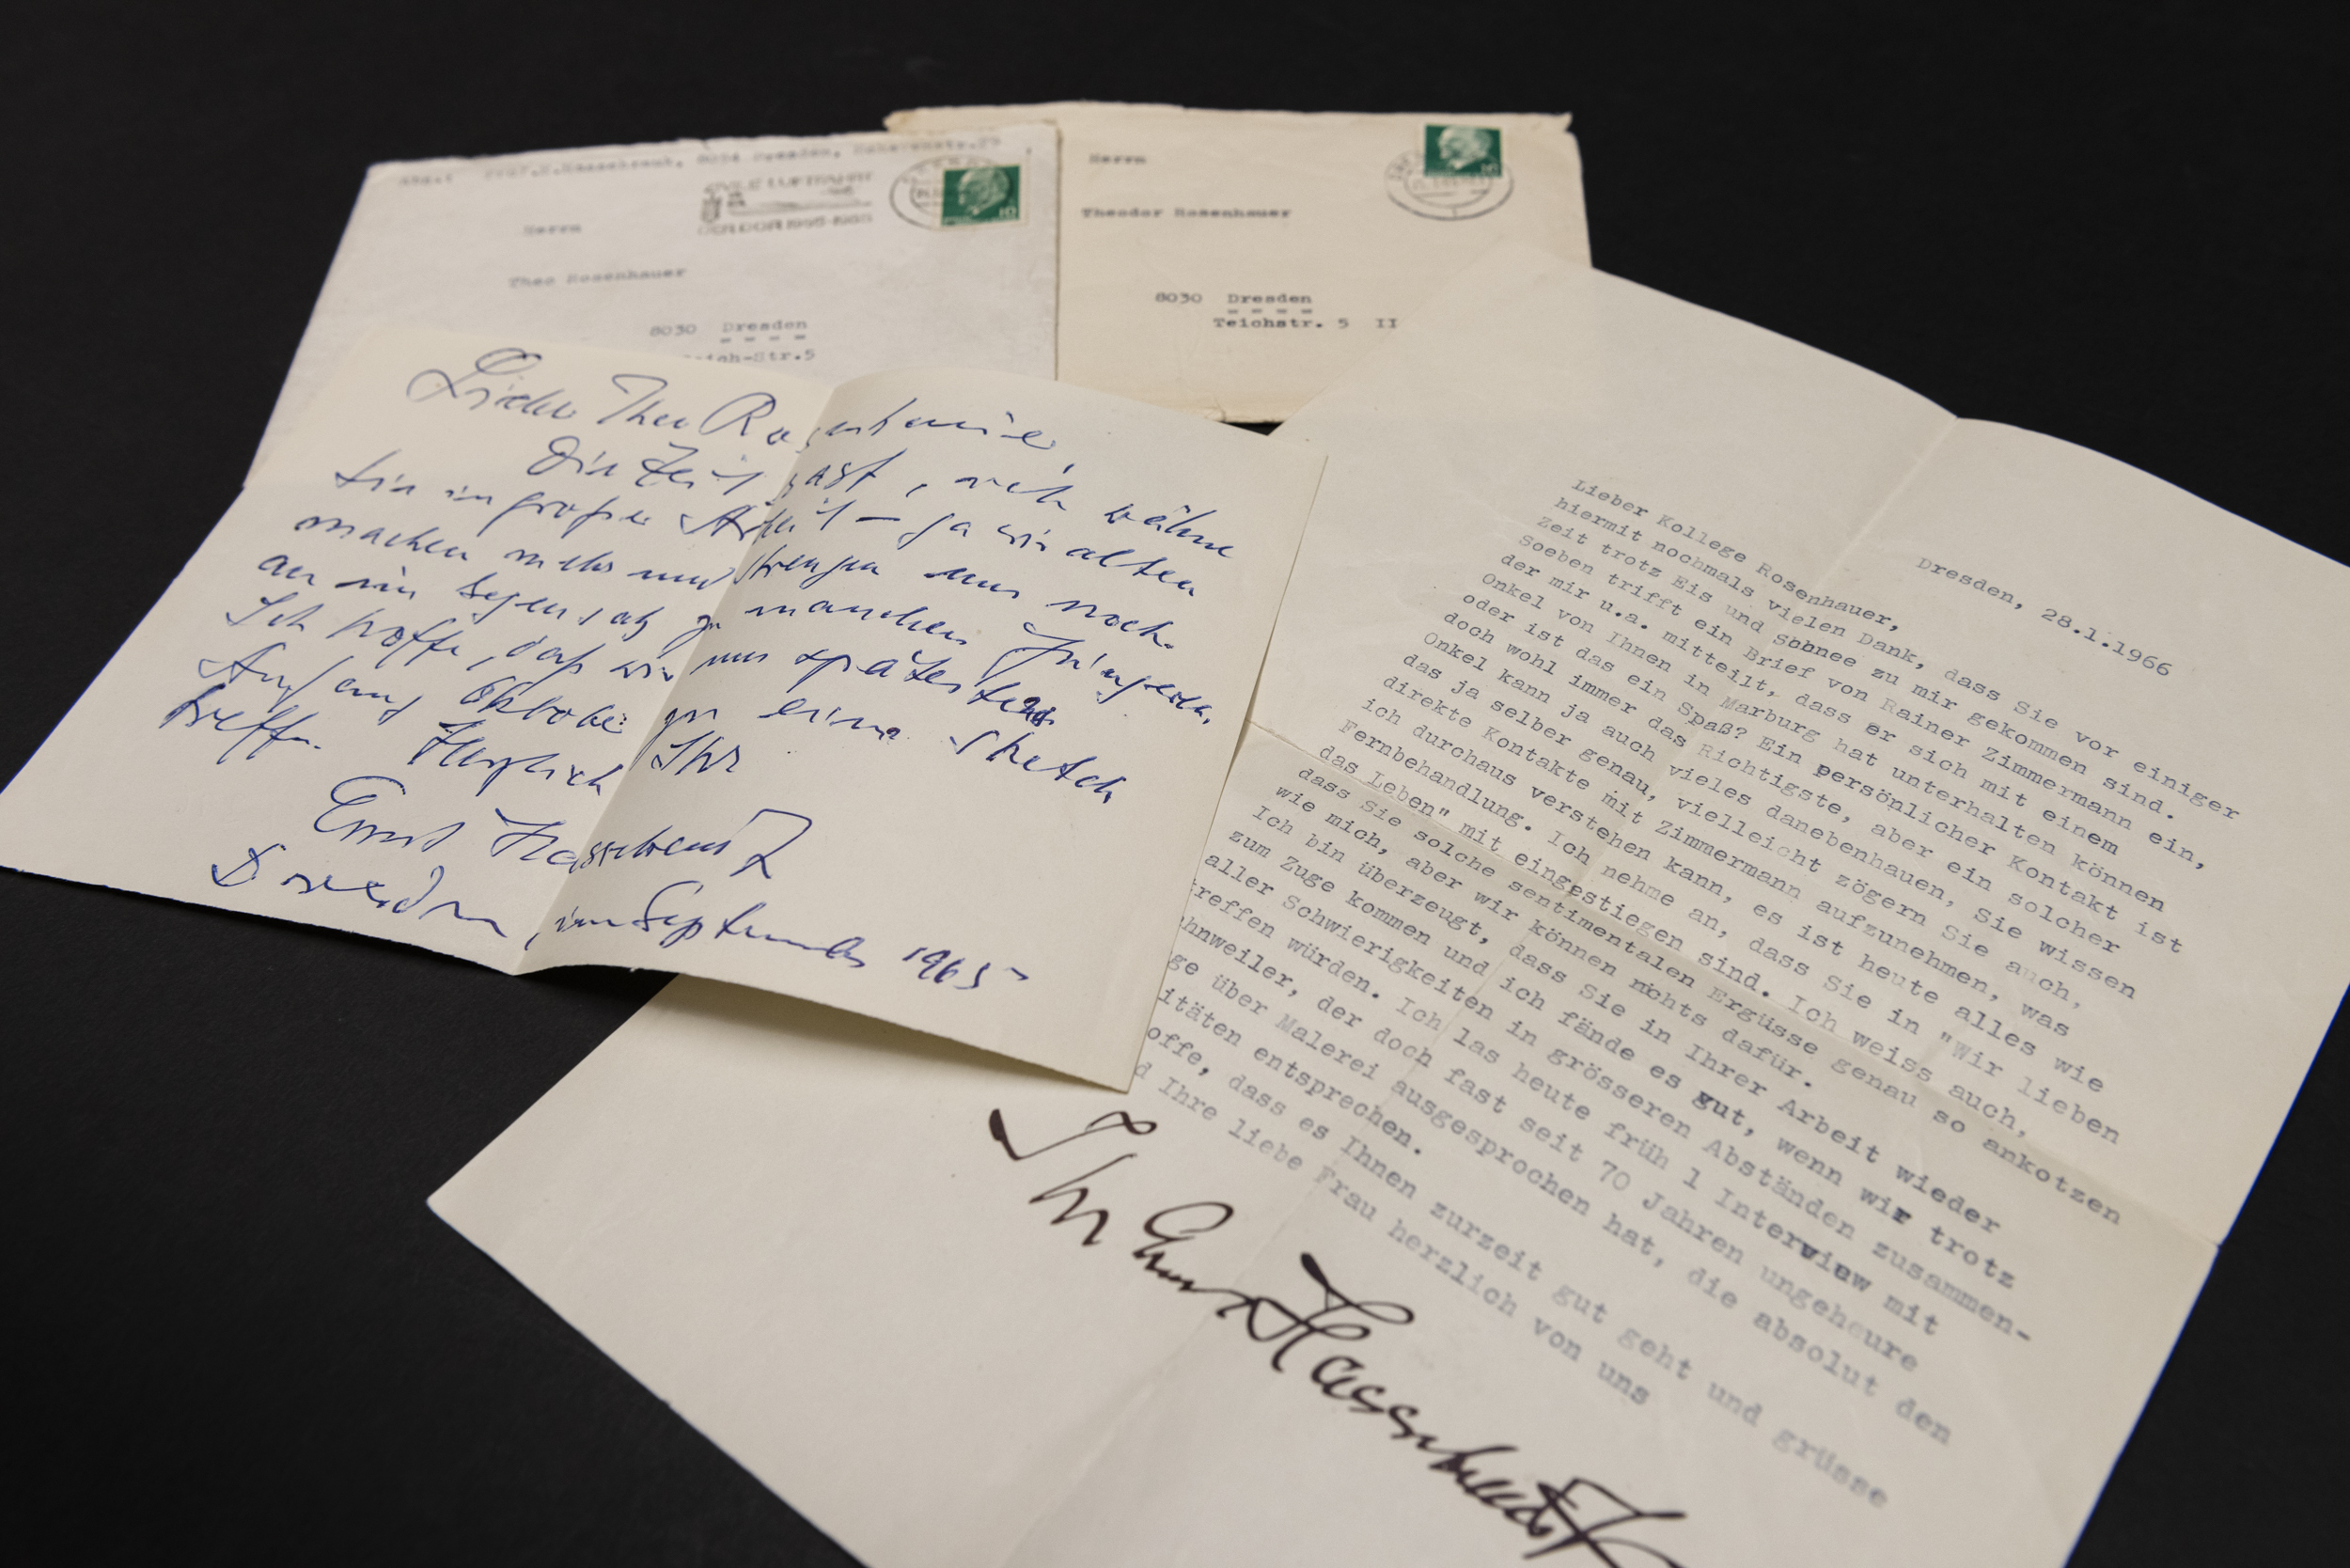 Prof.E.Hassebrauk, 8054 Dresden,
ZIVILE LUFTFAHRT
DER DDR 1955-1965
10
Herrn
Theo Rosenhauer
8030 Dresden
eich-Str.5
10
Herrn
Theodor Rosenhauer
8030 Dresden
Teichstr. 5 II
Lieber Theo Rosenhauer,
Die Zeit rast, ich wähne
Sie in großer Arbeit – ja wir alten
machen mehr und strengen uns noch
an im Gegensatz zu manchen Jüngeren.
Ich hoffe, daß wir uns spätestens
Anfang Oktober zu einem Sketch
treffen. Herzlich Ihr
Ernst Hassebrauk
Dresden, im September 1965
Dresden, 28.1.1966
Lieber Kollege Rosenhauer,
hiermit nochmals vielen Dank, dass Sie vor einiger
Zeit trotz Eis und Schnee zu mir gekommen sind.
Soeben trifft ein Brief von Rainer Zimmermann ein,
der mir u.a. mitteilt, dass er sich mit einem
Onkel von Ihnen in Marburg hat unterhalten können
oder ist das ein Spaß? Ein persönlicher Kontakt ist
doch wohl immer das Richtigste, aber ein solcher
Onkel kann ja auch vieles danebenhauen, Sie wissen
das ja selber genau, vielleicht zögern Sie auch,
direkte Kontakte mit Zimmermann aufzunehmen, was
ich durchaus verstehen kann, es ist heute alles wie
Fernbehandlung. Ich nehme an, dass Sie in "Wir lieben
das Leben" mit eingestiegen sind. Ich weiss auch,
dass Sie solche sentimentalen Ergüsse genau so ankotzen
wie mich, aber wir können nichts dafür.
Ich bin überzeugt, dass Sie in Ihrer Arbeit wieder
zum Zuge kommen und ich fände es gut, wenn wir trotz
aller Schwierigkeiten in grösseren Abständen zusammen-
treffen würden. Ich las heute früh 1 Interview mit
hnweiler, der doch fast seit 70 Jahren ungeheure
ge über Malerei ausgesprochen hat, die absolut den
itäten entsprechen.
offe, dass es Ihnen zurzeit gut geht und grüsse
d Ihre liebe Frau herzlich von uns
Ihr Ernst Hassebrauk